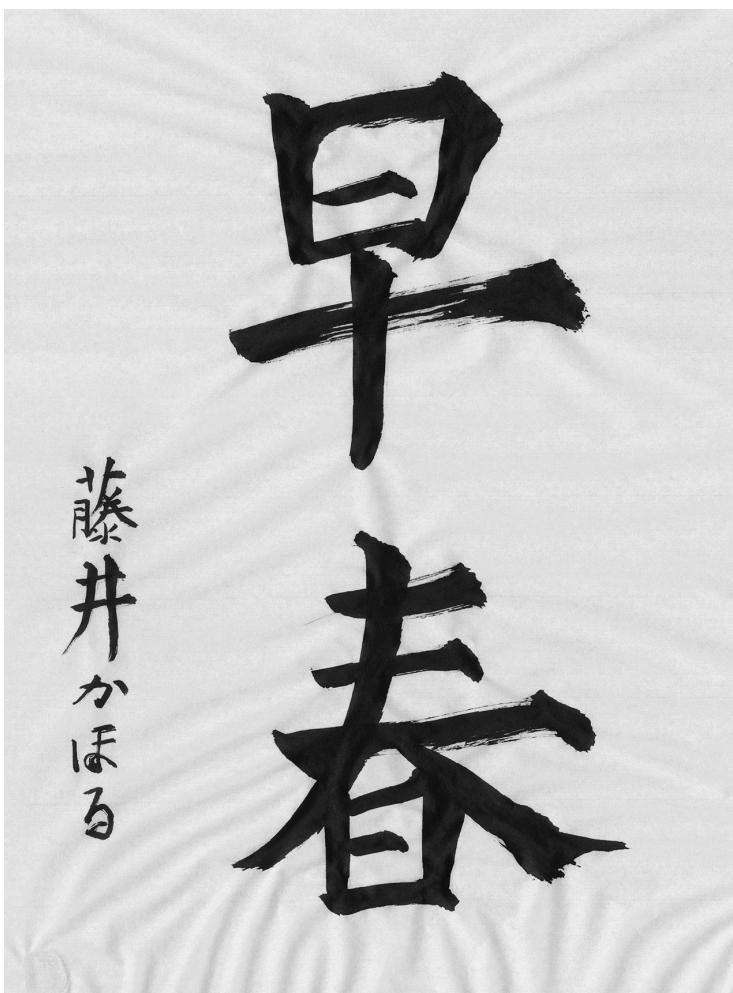 早春
藤井かほる